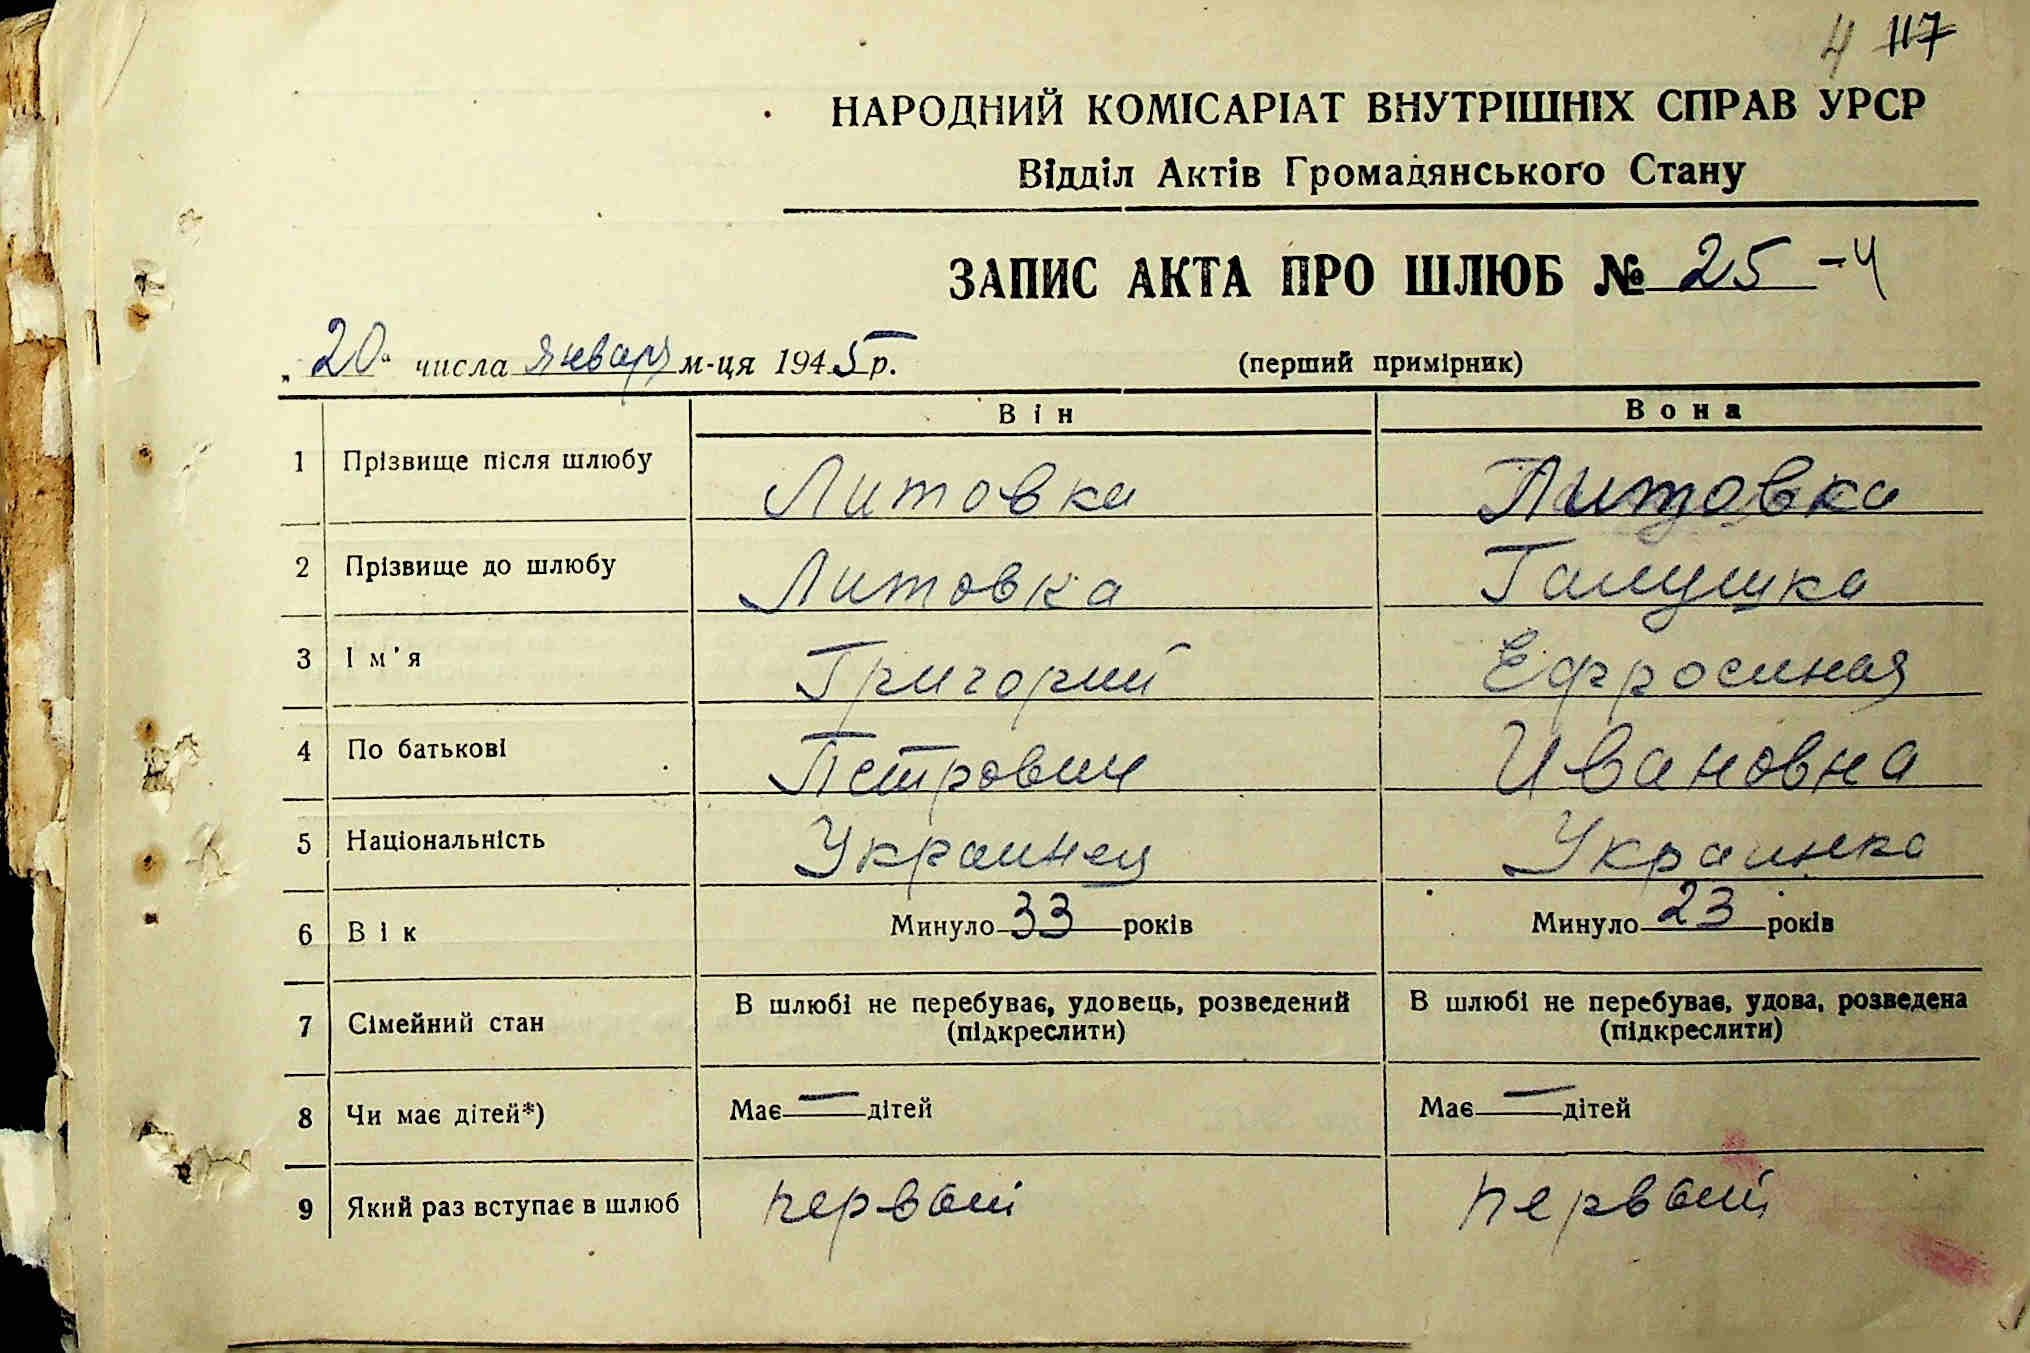 4 117
НАРОДНИЙ КОМІСАРІАТ ВНУТРІШНІХ СПРАВ УРСР
Відділ Актів Громадянського Стану
ЗАПИС АКТА ПРО ШЛЮБ № 25-ч
„20“ числа января м-ця 1945 р. (перший примірник)
Він Вона
1 Прізвище після шлюбу Литовка Литовка
2 Прізвище до шлюбу Литовка Галушка
3 Ім'я Григорий Ефросиная
4 По батькові Петрович Ивановна
5 Національність Украинец Украинка
6 Вік Минуло 33 років Минуло 23 років
7 Сімейний стан В шлюбі не перебуває, удовець, розведений В шлюбі не перебуває, удова, розведена
(підкреслити) (підкреслити)
8 Чи має дітей*) Має — дітей Має — дітей
9 Який раз вступає в шлюб первый первый